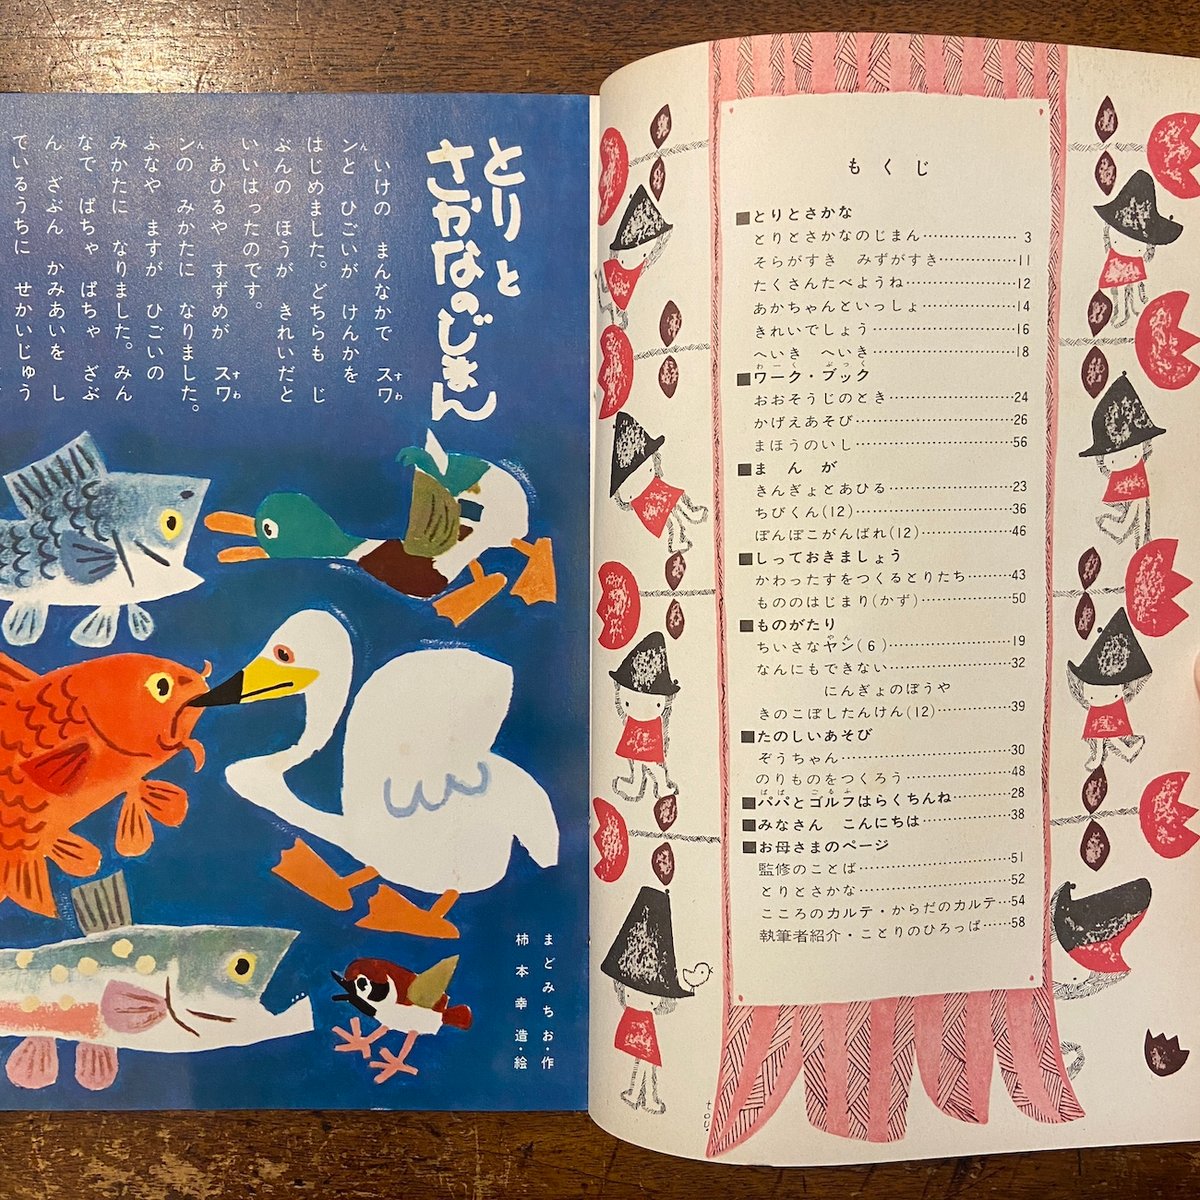 とりと
さかなのじまん
いけの まんなかで スワ
ンと ひごいが けんかを
はじめました。どちらも じ
ぶんの ほうが きれいだと
いいはったのです。
あひるや すずめが スワ
ンの みかたに なりました。
ふなや ますが ひごいの
みかたに なりました。みん
なで ばちゃ ばちゃ ざぶ
ん ざぶん かみあいを し
ているうちに せかいじゅう
まどみちお・作
柿本幸造・絵
もくじ
■とりとさかな
とりとさかなのじまん………………3
そらがすき みずがすき……………11
たくさんたべようね…………………12
あかちゃんといっしょ………………14
きれいでしょう………………………16
へいき へいき………………………18
■ワーク・ブック
おおそうじのとき……………………24
かげえあそび…………………………26
まほうのいし…………………………56
■まんが
きんぎょとあひる……………………23
ちびくん(12)…………………………36
ぽんぽこがんばれ(12)………………46
■しっておきましょう
かわったすをつくるとりたち………43
もののはじまり(かず)………………50
■ものがたり
ちいさなヤン(6)……………………19
なんにもできない……………………32
にんぎょのぼうや
きのこぼしたんけん(12)……………39
■たのしいあそび
ぞうちゃん……………………………30
のりものをつくろう…………………48
■パパとゴルフはらくちんね………28
■みなさん こんにちは……………38
■お母さまのページ
監修のことば…………………………51
とりとさかな…………………………52
こころのカルテ・からだのカルテ…54
執筆者紹介・ことりのひろっぱ……58
tou.